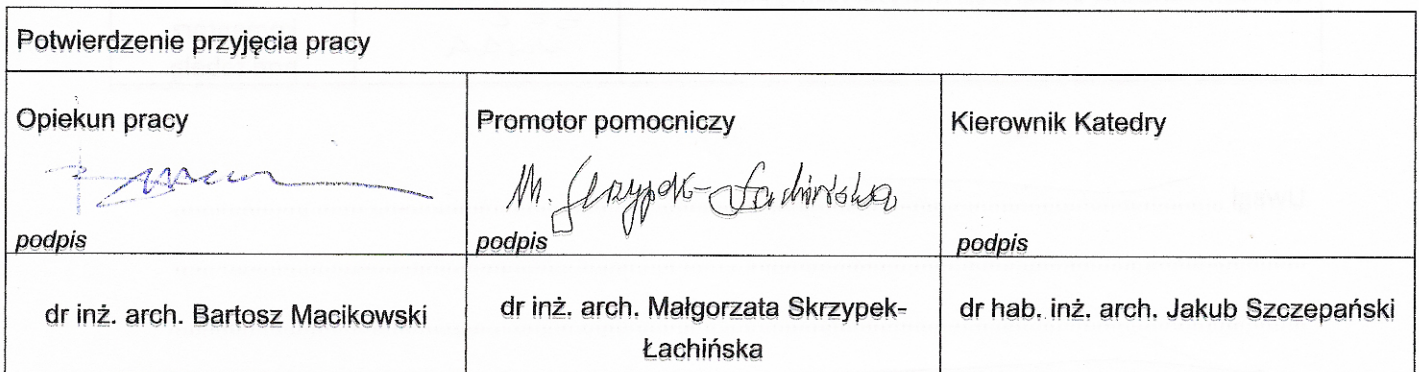 Potwierdzenie przyjęcia pracy
Opiekun pracy
podpis
Promotor pomocniczy
M. Skrzypek-Łachińska
podpis
Kierownik Katedry
podpis
dr inż. arch. Bartosz Macikowski
dr inż. arch. Małgorzata Skrzypek-
Łachińska
dr hab. inż. arch. Jakub Szczepański